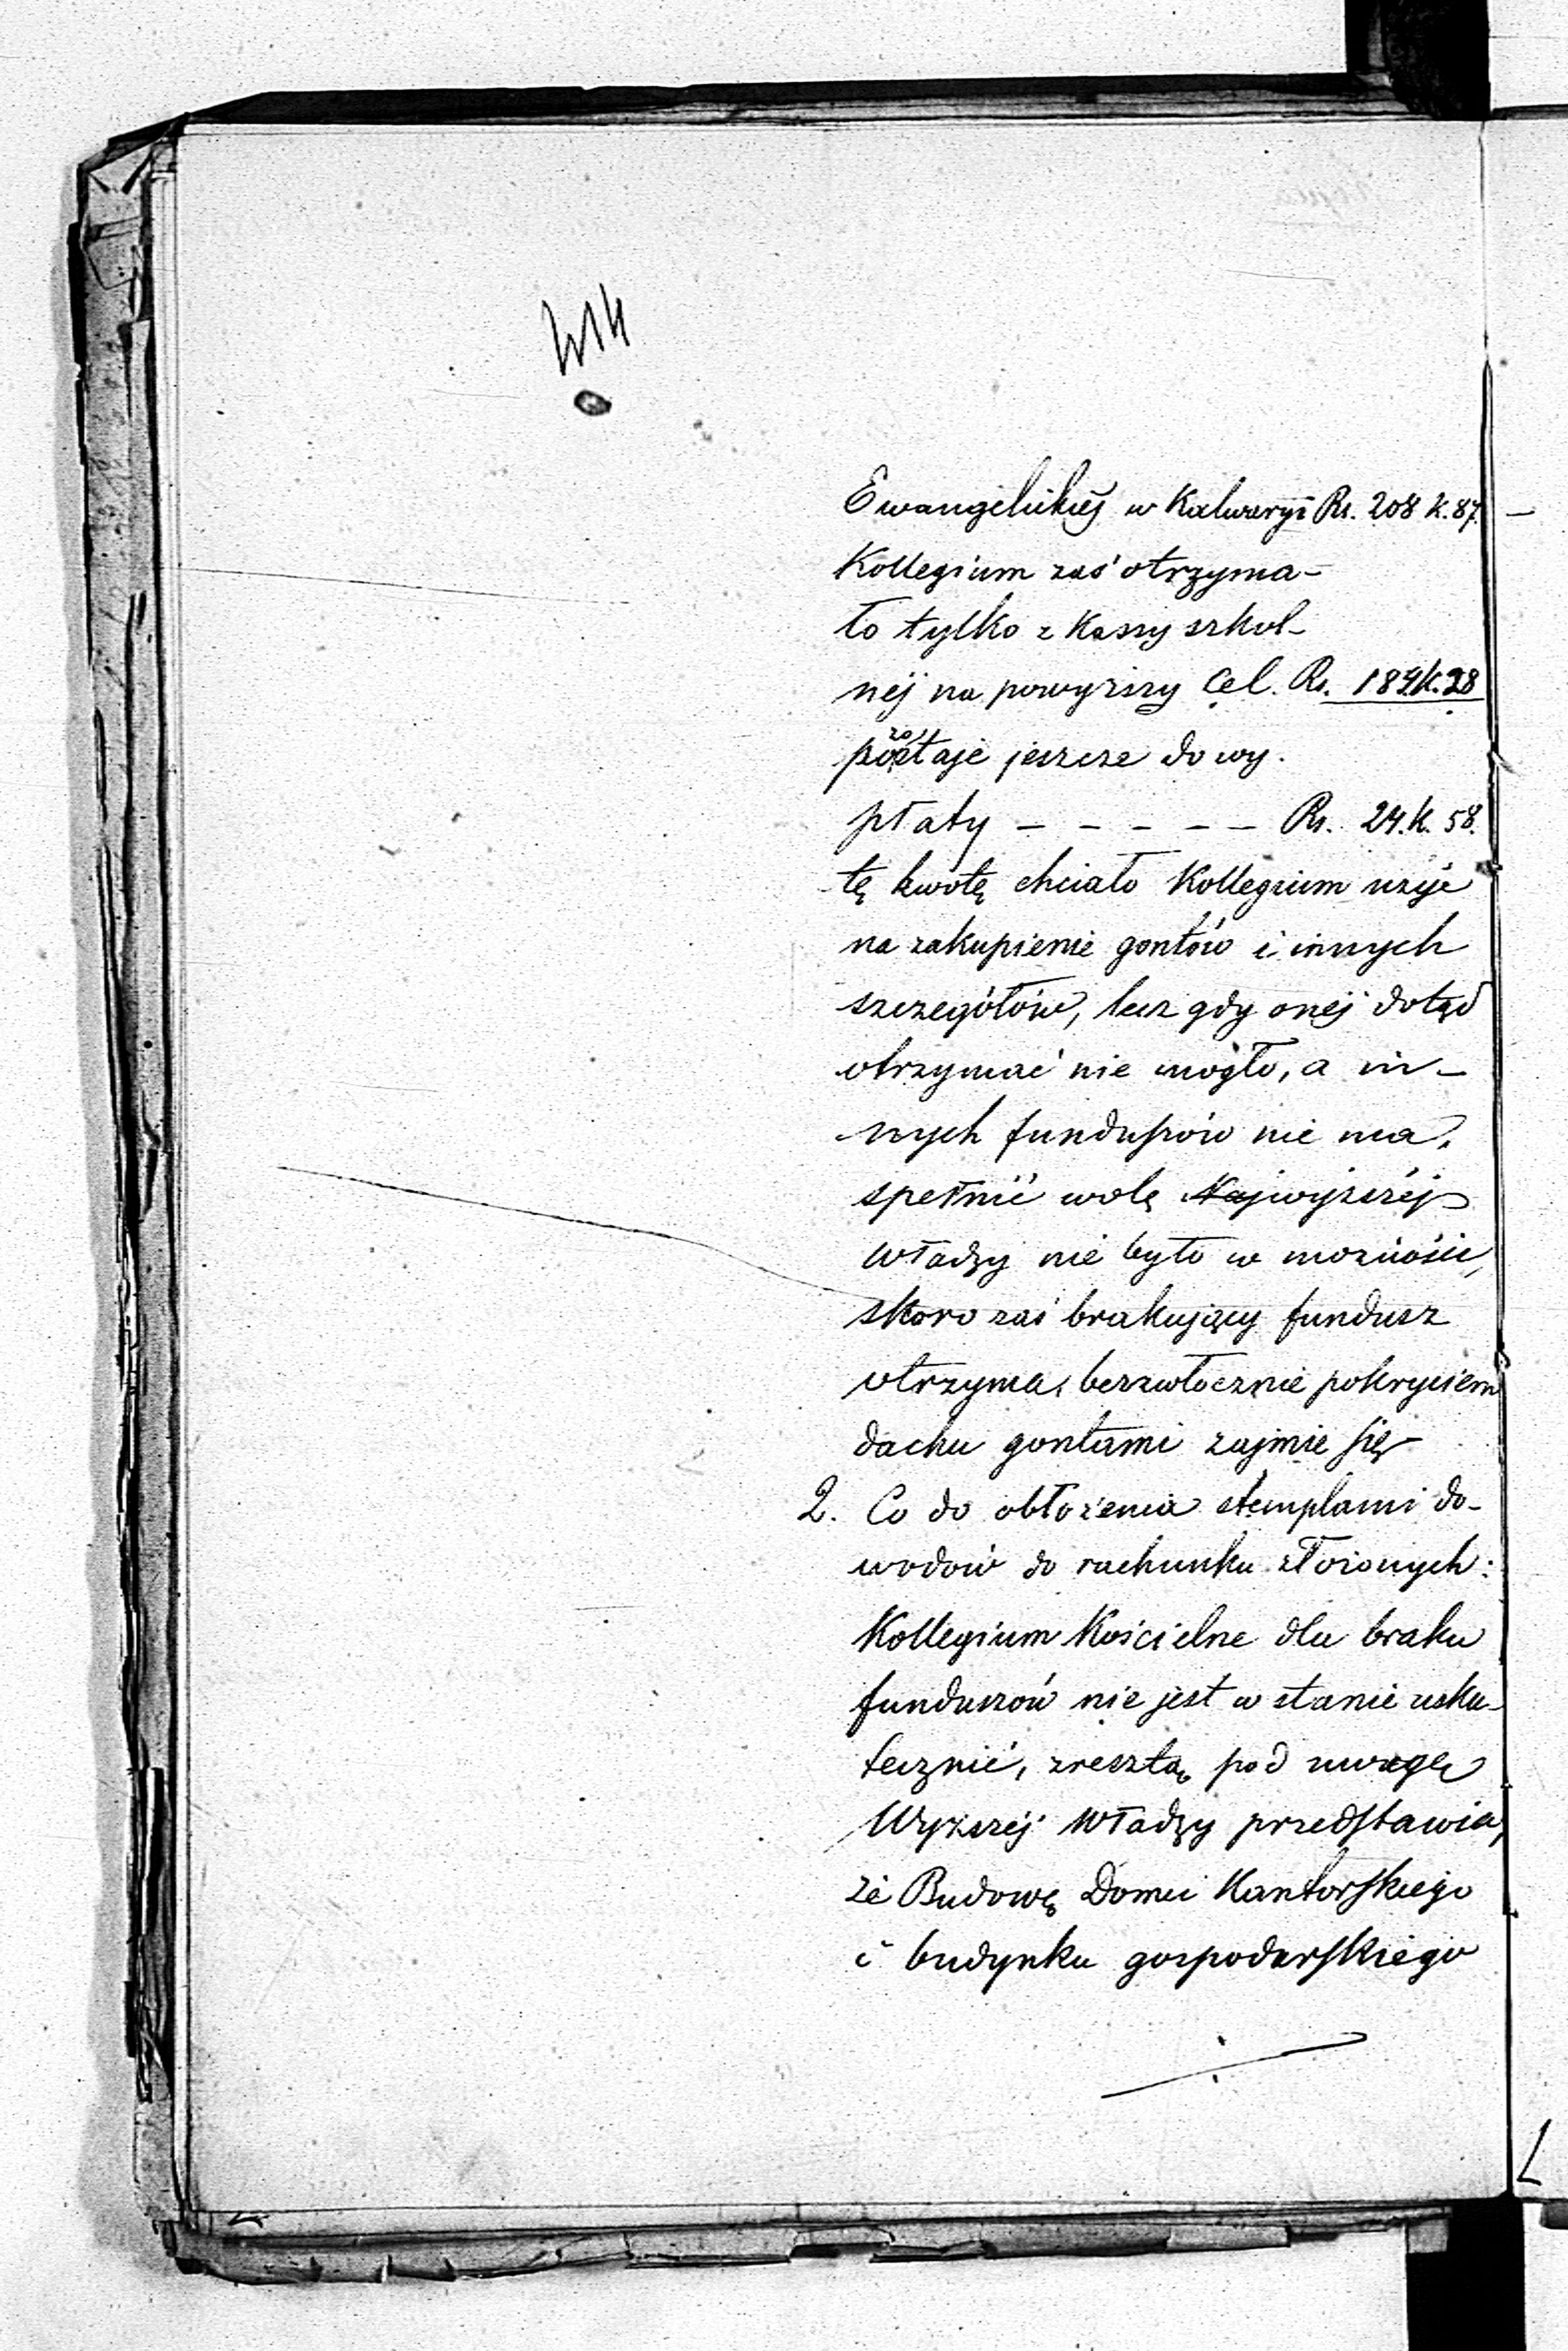 414
Ewangelickiéj w Kalwaryi Rs. 208 k. 87.
Kollegium zaś otrzyma-
ło tylko z Kassy szkol-
néj na powyższy Cel. Rs. 184 k. 28
pozostaje jeszcze do wy-
płaty — — — — — Rs. 24. k. 58.
tę kwotę chciało Kollegium użyć
na zakupienie gontów i innych
szczegółów, lecz gdy onéj dotąd
otrzymać nie mogło, a in-
nych funduszów nie ma,
spełnić wolę Najwyższéj
Władzy nie było w możności,
skoro zaś brakujący fundusz
otrzyma, bezzwłocznie pokryciem
dachu gontami zajmie się
2. Co do obłożenia stemplami do-
wodów do rachunku złożonych:
Kollegium Kościelne dla braku
funduszów nie jest w stanie usku-
tecznić, zresztą pod uwagę
Wyższéj Władzy przedstawia,
że Budowę Domu Kantorskiego
i budynku gospodarskiego